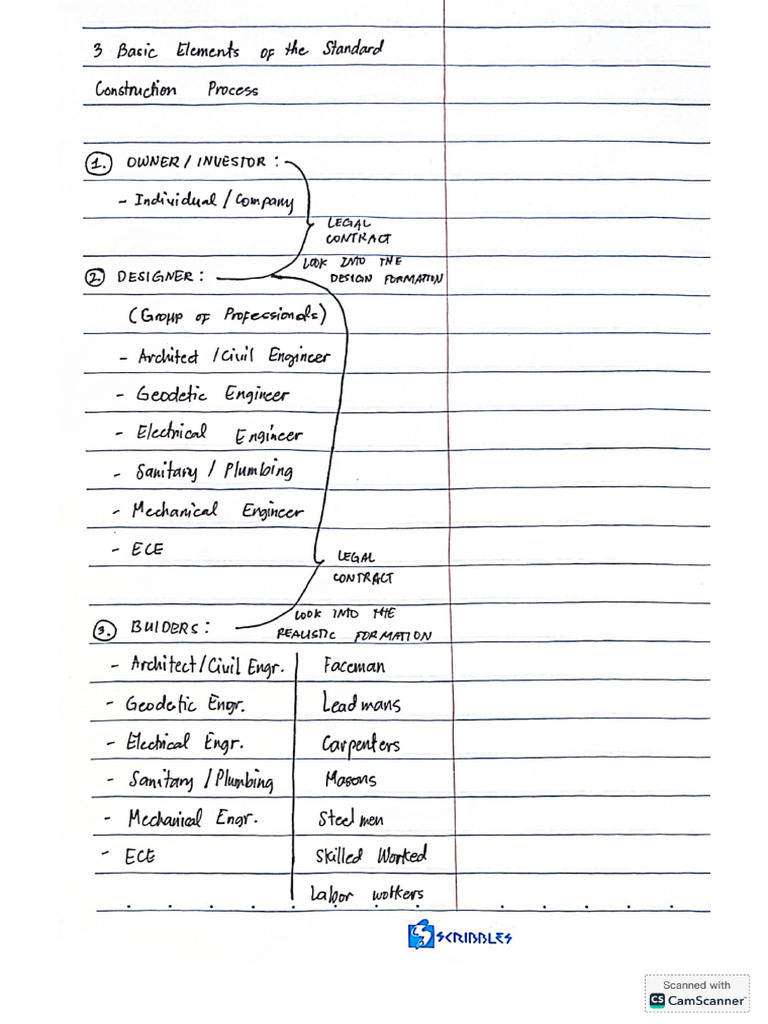 3 Basic Elements of the Standard
Construction Process
1. OWNER / INVESTOR :
- Individual / Company
LEGAL
CONTRACT
LOOK INTO THE
DESIGN FORMATION
2. DESIGNER :
(Group of Professionals)
- Architect / Civil Engineer
- Geodetic Engineer
- Electrical Engineer
- Sanitary / Plumbing
- Mechanical Engineer
- ECE
LEGAL
CONTRACT
LOOK INTO THE
REALISTIC FORMATION
3. BUIDERS :
- Architect / Civil Engr. Faceman
- Geodetic Engr. Lead mans
- Electrical Engr. Carpenters
- Sanitary / Plumbing Masons
- Mechanical Engr. Steel men
- ECE Skilled Worked
Labor workers
SCRIBBLES
Scanned with
CS CamScanner